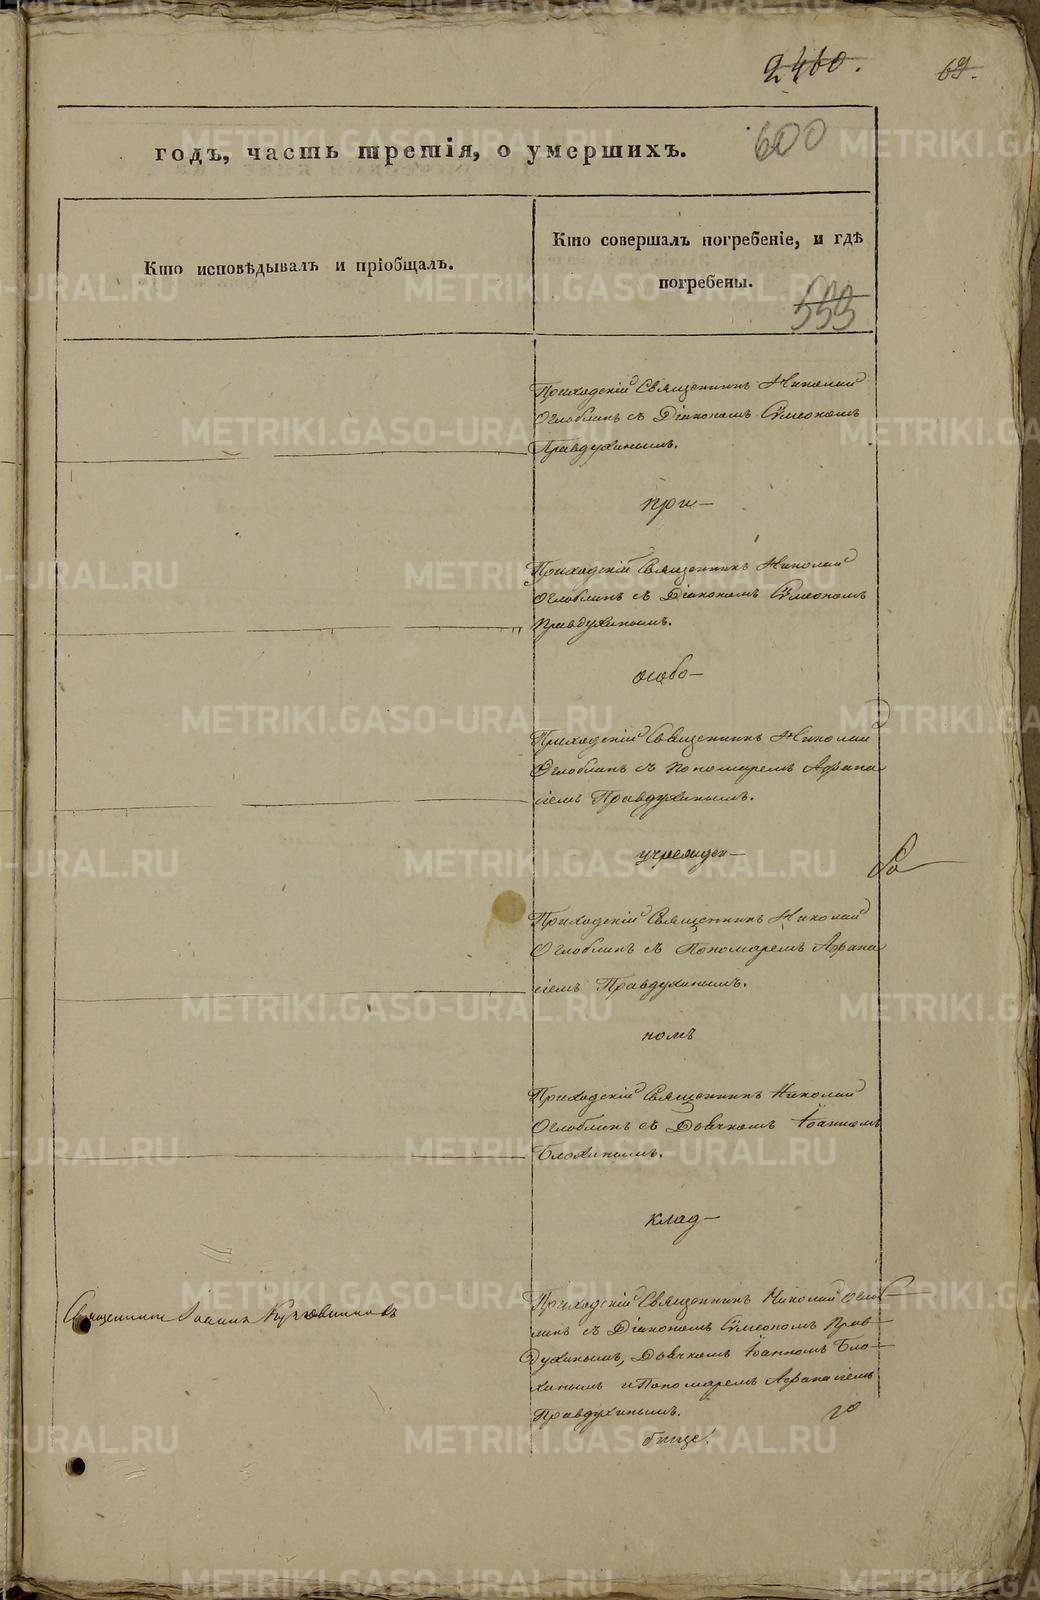 2460.
69.
600
годъ, часть третія, о умершихъ.
Кто исповѣдывалъ и пріобщалъ.
Кто совершалъ погребеніе, и гдѣ
погребены.
593
Приходскій Священникъ Николай
Оглоблинъ съ Діакономъ Сѵмеономъ
Правдухинымъ.
при-
Приходскій Священникъ Николай
Оглоблинъ съ Діакономъ Сѵмеономъ
Правдухинымъ.
особо-
Приходскій Священникъ Николай
Оглоблинъ съ Пономаремъ Афана
сіемъ Правдухинымъ.
учрежден-
Приходскій Священникъ Николай
Оглоблинъ съ Пономаремъ Афана
сіемъ Правдухинымъ.
номъ
Приходскій Священникъ Николай
Оглоблинъ съ Дьячкомъ Іоанномъ
Блохинымъ.
клад-
Священникъ Іоаннъ
Приходскій Священникъ Николай Огло
линъ съ Діакономъ Сѵмеономъ Прав-
духинымъ, Дьячкомъ Іоанномъ Бло-
хинымъ и Пономаремъ Афанасіемъ
Правдухинымъ.
бище.
METRIKI.GASO-URAL.RU